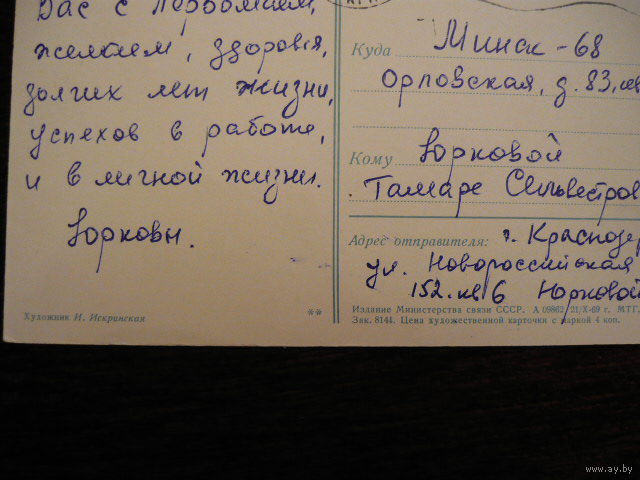 Вас с Первомаем,
желаем, здоровья,
долгих лет жизни,
успехов в работе,
и в личной жизни.
Юрковы.
Художник И. Искринская
**
Куда Минск-68
Орловская, д. 83, кв
Кому Юрковой
Тамаре Сильвестров
Адрес отправителя: г. Краснодар
ул. Новороссийская
152. кв 6 Юрковой
Издание Министерства связи СССР. А 09862 21/X-69 г. МТГ.
Зак. 8144. Цена художественной карточки с маркой 4 коп.
www.ay.by